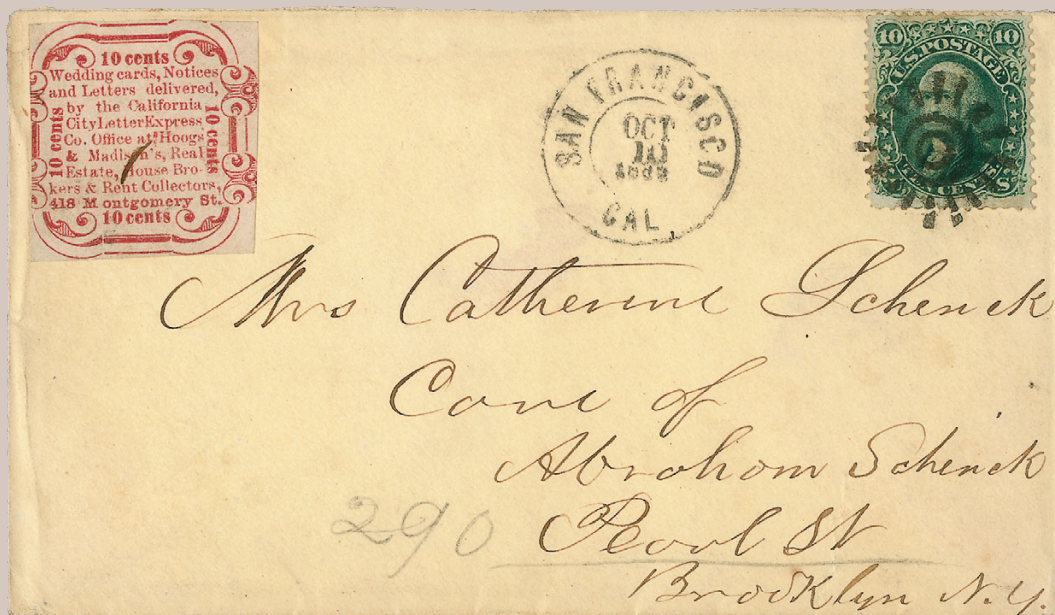 10 cents
Wedding cards, Notices
and Letters delivered,
by the California
City Letter Express
Co. Office at Hoogs
& Madison's, Real
Estate, House Bro-
kers & Rent Collectors,
418 Montgomery St.
10 cents
10 cents
10 cents
SAN FRANCISCO
OCT
10
CAL
10 10
U.S. POSTAGE
CENTS
U S
Mrs Catherine Schenck
Care of
Abraham Schenck
290 Pearl St
Brooklyn N.Y.